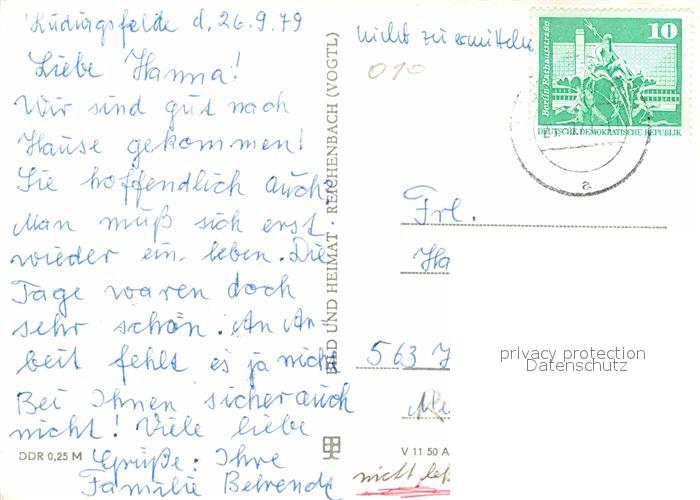 Ludwigsfelde d. 26.9.79
Liebe Hanna!
Wir sind gut nach
Hause gekommen!
Sie hoffendlich auch?
Man muß sich erst
wieder ein leben. Die
Tage waren doch
sehr schön. An Ar-
beit fehlt es ja nicht
Bei Ihnen sicher auch
nicht! Viele liebe
Grüße: Ihre
Familie Behrendt
DDR 0,25 M
BILD UND HEIMAT · REICHENBACH (VOGTL)
nicht zu ermitteln
010
10
Berlin, Rathausstraße
DEUTSCHE DEMOKRATISCHE REPUBLIK
a
Frl.
Ha
563
V 11 50 A
nicht
privacy protection
Datenschutz